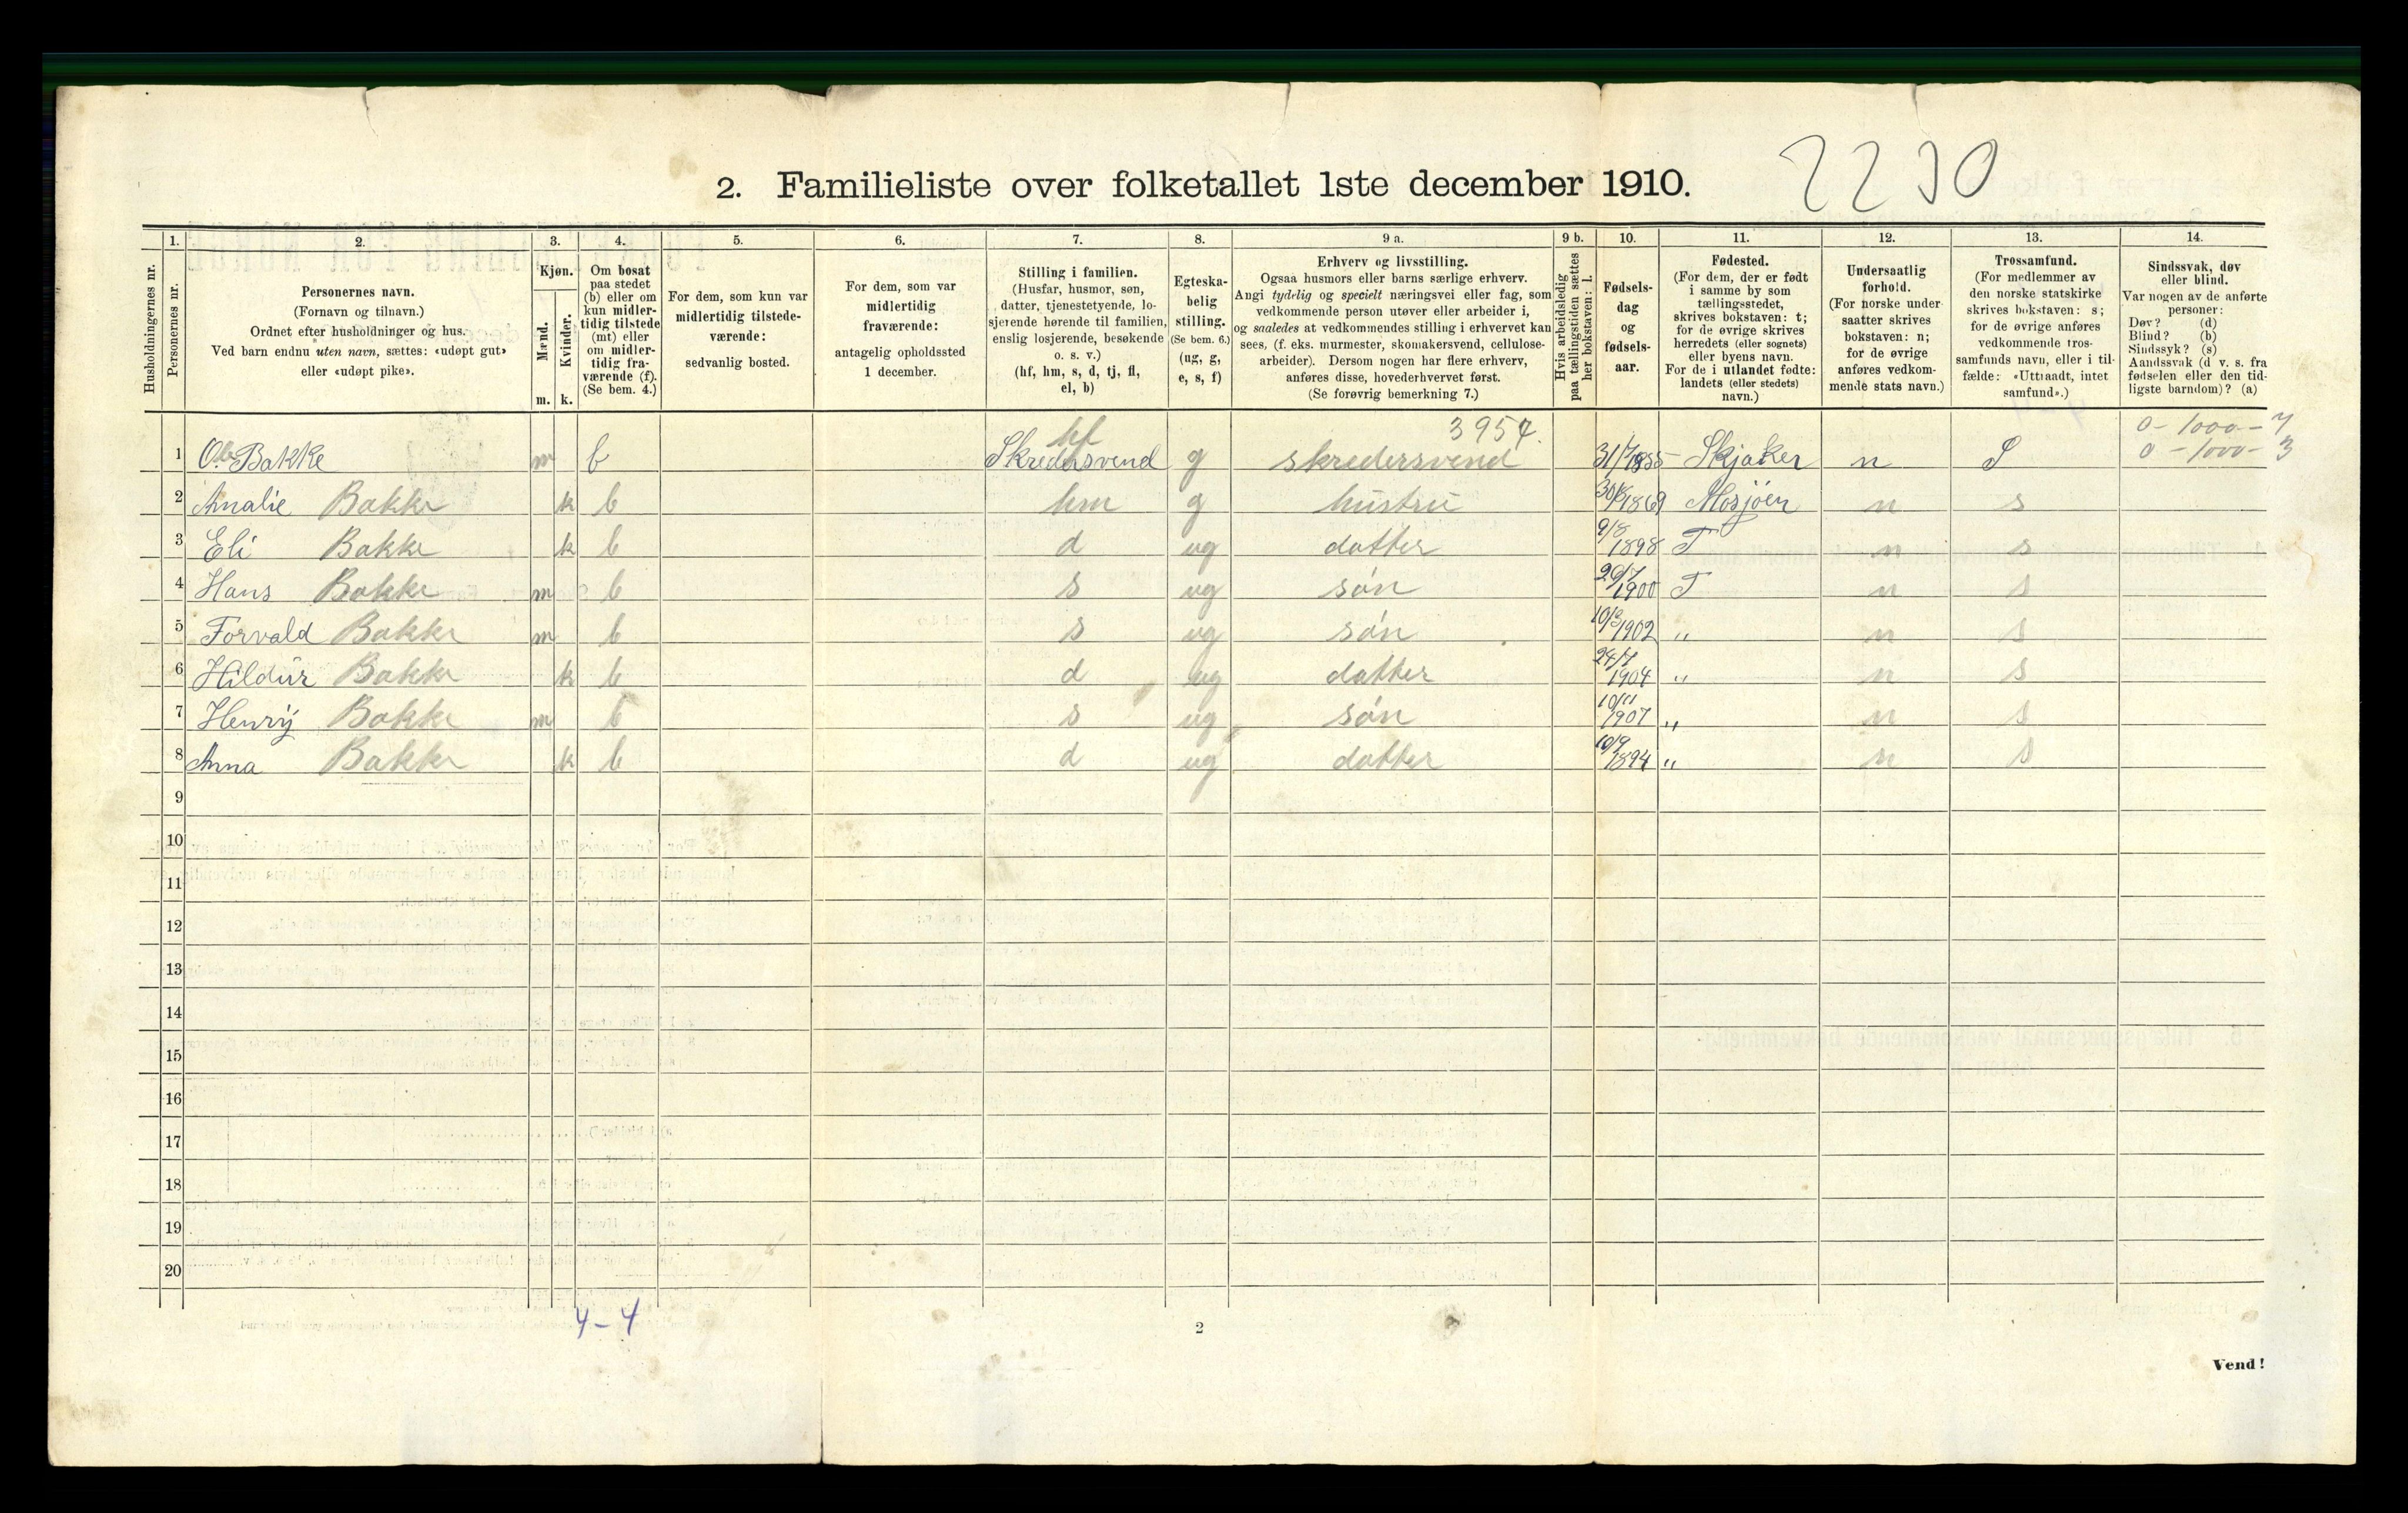 2230
2. Familieliste over folketallet 1ste december 1910.
1. 2. 3. 4. 5. 6. 7. 8. 9 a. 9 b. 10. 11. 12. 13. 14.
Husholdningernes nr.
Personernes nr.
Personernes navn.
(Fornavn og tilnavn.)
Ordnet efter husholdninger og hus.
Ved barn endnu uten navn, sættes: «udøpt gut»
eller «udøpt pike».
Kjøn.
Mænd.
Kvinder.
m. k.
Om bosat
paa stedet
(b) eller om
kun midler-
tidig tilstede
(mt) eller
om midler-
tidig fra-
værende (f).
(Se bem. 4.)
For dem, som kun var
midlertidig tilstede-
værende:
sedvanlig bosted.
For dem, som var
midlertidig
fraværende:
antagelig opholdssted
1 december.
Stilling i familien.
(Husfar, husmor, søn,
datter, tjenestetyende, lo-
sjerende hørende til familien,
enslig losjerende, besøkende
o. s. v.)
(hf, hm, s, d, tj, fl,
el, b)
Egteska-
belig
stilling.
(Se bem. 6.)
(ug, g,
e, s, f)
Erhverv og livsstilling.
Ogsaa husmors eller barns særlige erhverv.
Angi tydelig og specielt næringsvei eller fag, som
vedkommende person utøver eller arbeider i,
og saaledes at vedkommendes stilling i erhvervet kan
sees, (f. eks. murmester, skomakersvend, cellulose-
arbeider). Dersom nogen har flere erhverv,
anføres disse, hovederhvervet først.
(Se forøvrig bemerkning 7.)
Hvis arbeidsledig
paa tællingstiden sættes
her bokstaven: l.
Fødsels-
dag
og
fødsels-
aar.
Fødested.
(For dem, der er født
i samme by som
tællingsstedet,
skrives bokstaven: t;
for de øvrige skrives
herredets (eller sognets)
eller byens navn.
For de i utlandet fødte:
landets (eller stedets)
navn.)
Undersaatlig
forhold.
(For norske under-
saatter skrives
bokstaven: n;
for de øvrige
anføres vedkom-
mende stats navn.)
Trossamfund.
(For medlemmer av
den norske statskirke
skrives bokstaven: s;
for de øvrige anføres
vedkommende tros-
samfunds navn, eller i til-
fælde: «Uttraadt, intet
samfund».)
Sindssvak, døv
eller blind.
Var nogen av de anførte
personer:
Døv? (d)
Blind? (b)
Sindssyk? (s)
Aandssvak (d v. s. fra
fødselen eller den tid-
ligste barndom)? (a)
hf 3954. 0-1000-7
1 Ole Bakke m b Skredersvend g skredersvend 31/7 1855 Skjaker n S 0-1000-3
2 Amalie Bakke k b hm g hustru 30/8 1869 Mosjöen n s
3 Eli Bakke k b d ug datter 9/8 1898 T n s
4 Hans Bakke m b s ug søn 29/7 1900 T n s
5 Torvald Bakke m b s ug søn 10/3 1902 " n s
6 Hildur Bakke k b d ug datter 24/7 1904 " n s
7 Henry Bakke m b s ug søn 10/11 1907 " n s
8 Anna Bakke k b d ug datter 10/9 1894 " n s
9
10
11
12
13
14
15
16
17
18
19
20
4-4
2
Vend!